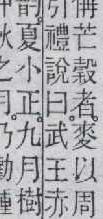 偁芒穀者。麥以周
引禮說曰。武王赤
韵。夏小正。九月樹
秋之月。乃勸種